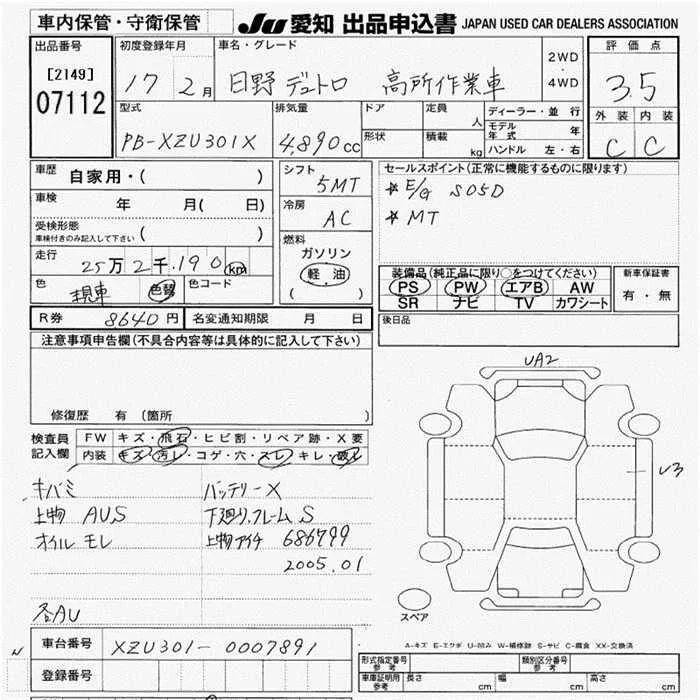 車内保管・守衛保管
JU 愛知 出品申込書 JAPAN USED CAR DEALERS ASSOCIATION
出品番号
[2149]
07112
初度登録年月
17 2月
車名・グレード
日野 デュトロ 高所作業車
2WD
・
4WD
評価点
3.5
外装 内装
C C
型式
PB-XZU301X
排気量
4,890cc
ドア
形状
定員
人
積載
kg
ディーラー・並行
モデル年式 年
ハンドル 左・右
車歴
自家用・( )
車検
年 月( 日)
受検形態
車検付きのみ記入して下さい ( )
走行
25万2千190km
色
色替
色コード
シフト
5MT
冷房
AC
燃料
ガソリン
軽油
( )
セールスポイント(正常に機能するものに限ります)
☆ E/G S05D
☆ MT
装備品(純正品に限り○をつけてください)
PS PW エアB AW
SR ナビ TV カワシート
新車保証書
有・無
R券 8640円 名変通知期限 月 日
後日品
注意事項申告欄(不具合内容等は具体的に記入して下さい)
修復歴 有(箇所 )
検査員
記入欄
FW キズ・飛石・ヒビ割・リペア跡・X要
内装 キズ・汚レ・コゲ・穴・スレ・キレ・破レ
キバミ バッテリーX
上物 AUS 下廻り,フレームS
オイルモレ 上物アイチ 686799
2005.01
各AU
UA2
U3
スペア
車台番号 XZU301-0007891
登録番号
A-キズ E-エクボ U-凹み W-補修跡 S-サビ C-腐食 XX-交換済
形式指定番号 参考
類別区分番号 参考
車庫証明用 参考
長さ cm 幅 cm 高さ cm